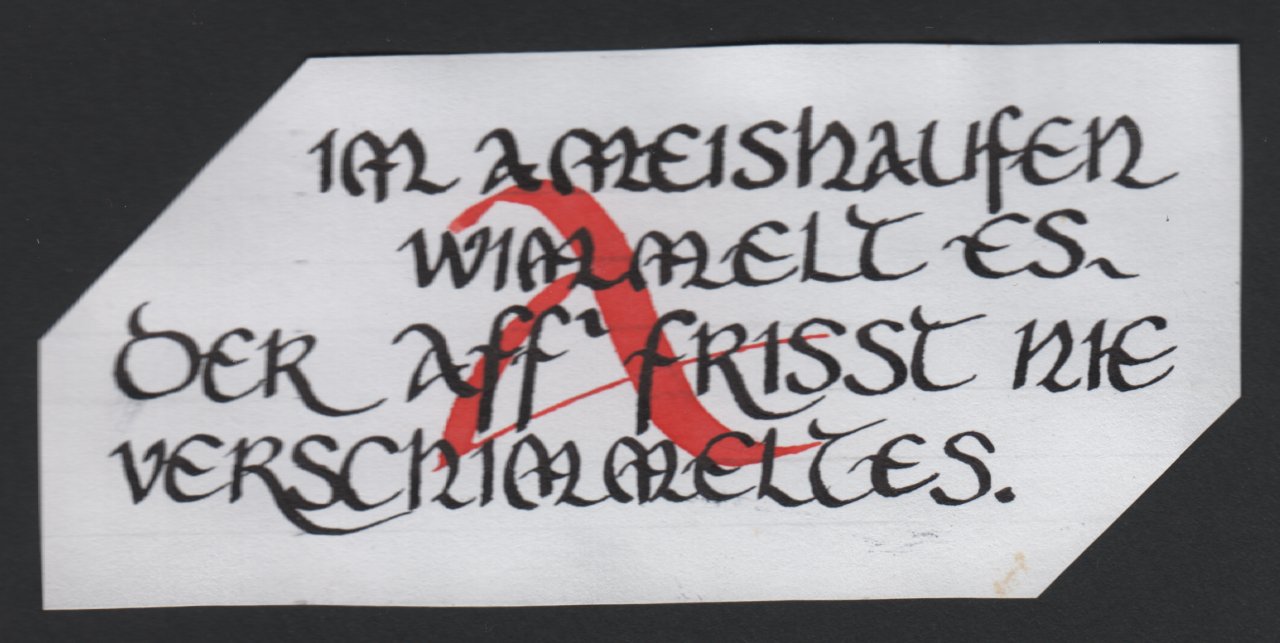 IM AMEISHAUFEN
WIMMELT ES,
DER AFF' FRISST NIE
VERSCHIMMELTES.
A